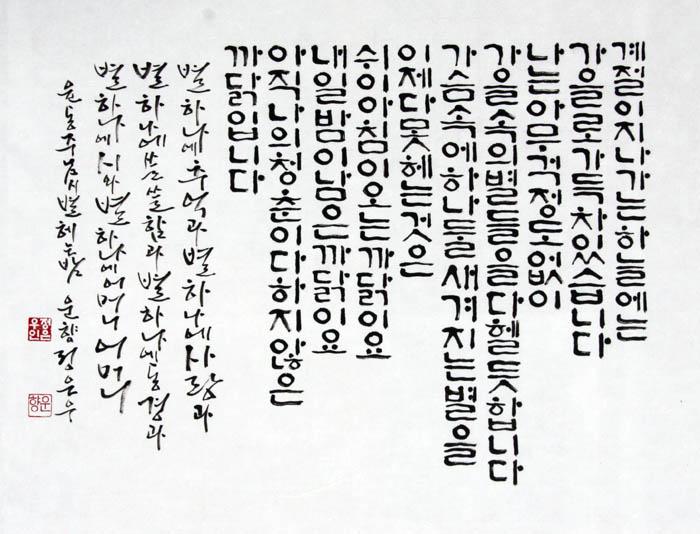 계절이지나가는하늘에는
가을로가득차있습니다
나는아무걱정도없이
가을속의별들을다헬듯합니다
가슴속에하나둘새겨지는별을
이제다못헤는것은
쉬이아침이오는까닭이요
내일밤이남은까닭이요
아직나의청춘이다하지않은
까닭입니다
별하나에추억과별하나에사랑과
별하나에쓸쓸함과별하나에동경과
별하나에시와별하나에어머니어머니
윤동주님시별헤는밤 운향정은우